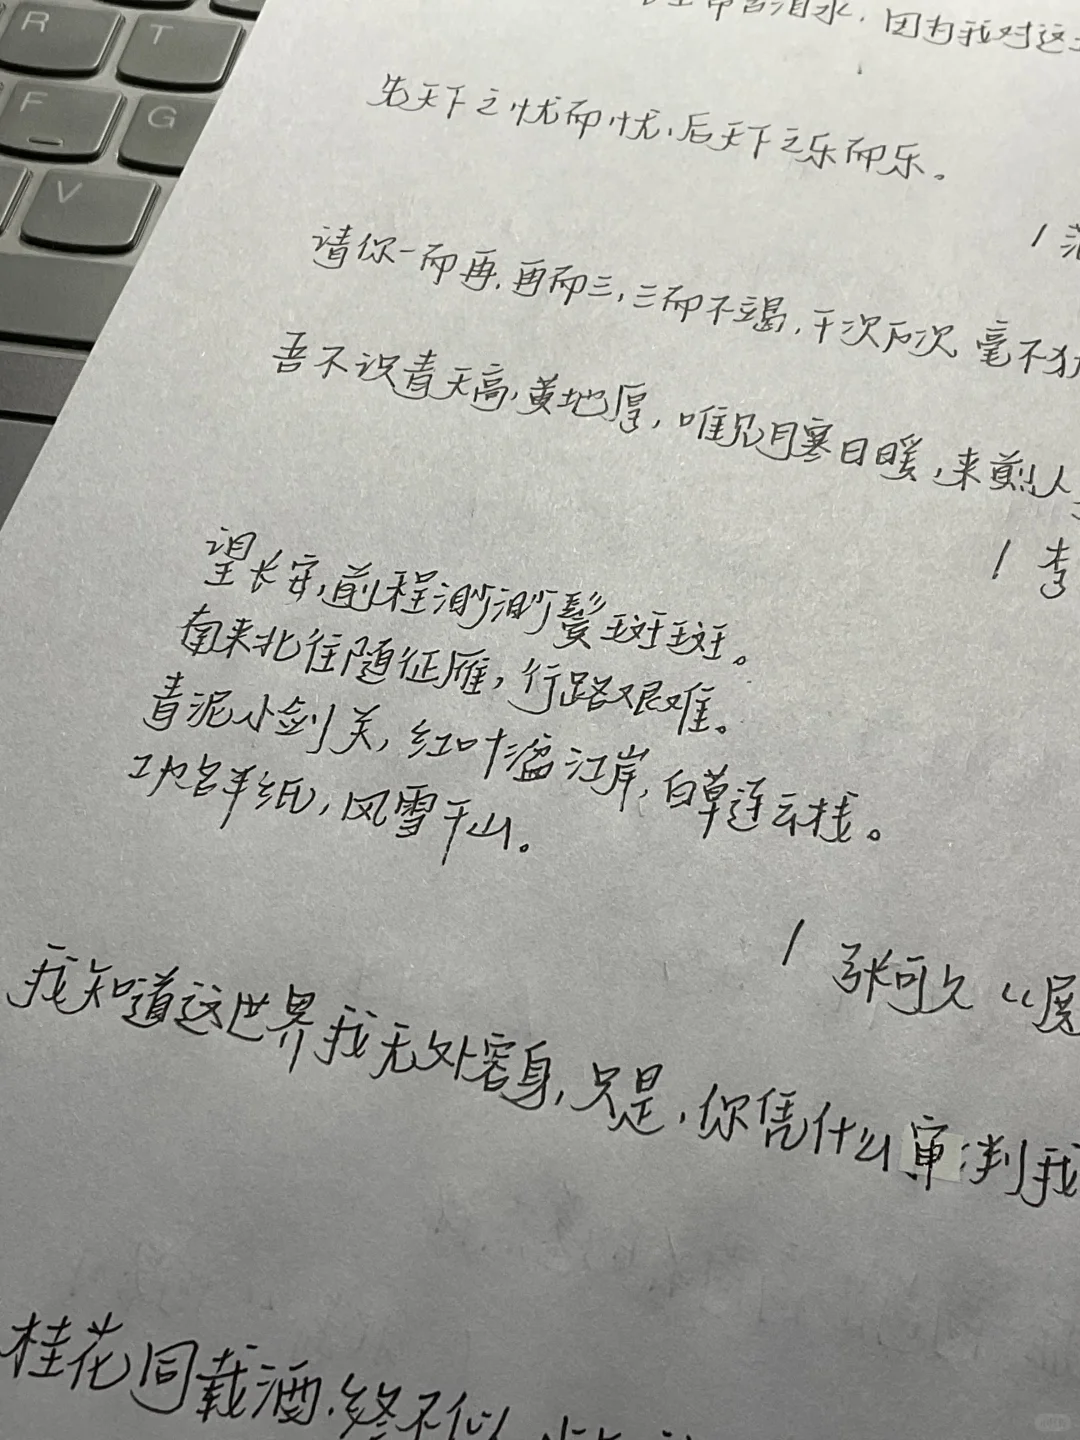 R T
F G
V
泪水，因为我对这
先天下之忧而忧，后天下之乐而乐。
/ 范
请你一而再，再而三，三而不竭，千次万次 毫不犹
吾不识青天高，黄地厚，唯见月寒日暖，来煎人
/ 李
望长安，前程渺渺鬓斑斑。
南来北往随征雁，行路艰难。
青泥小剑关，红叶湓江岸，白草连云栈。
功名半纸，风雪千山。
/ 张可久
我知道这世界我无处容身，只是，你凭什么审判我
桂花同载酒，终不似